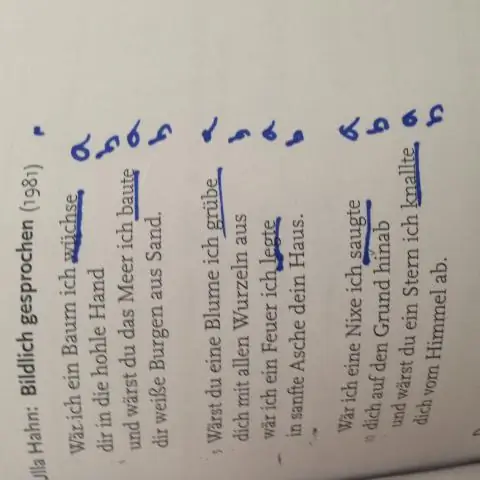 Ulla Hahn: Bildlich gesprochen (1981)
Wär ich ein Baum ich wüchse a
dir in die hohle Hand b
und wärst du das Meer ich baute a
dir weiße Burgen aus Sand. b
5 Wärst du eine Blume ich grübe a
dich mit allen Wurzeln aus b
wär ich ein Feuer ich legte a
in sanfte Asche dein Haus. b
Wär ich eine Nixe ich saugte a
10 dich auf den Grund hinab b
und wärst du ein Stern ich knallte a
dich vom Himmel ab. b